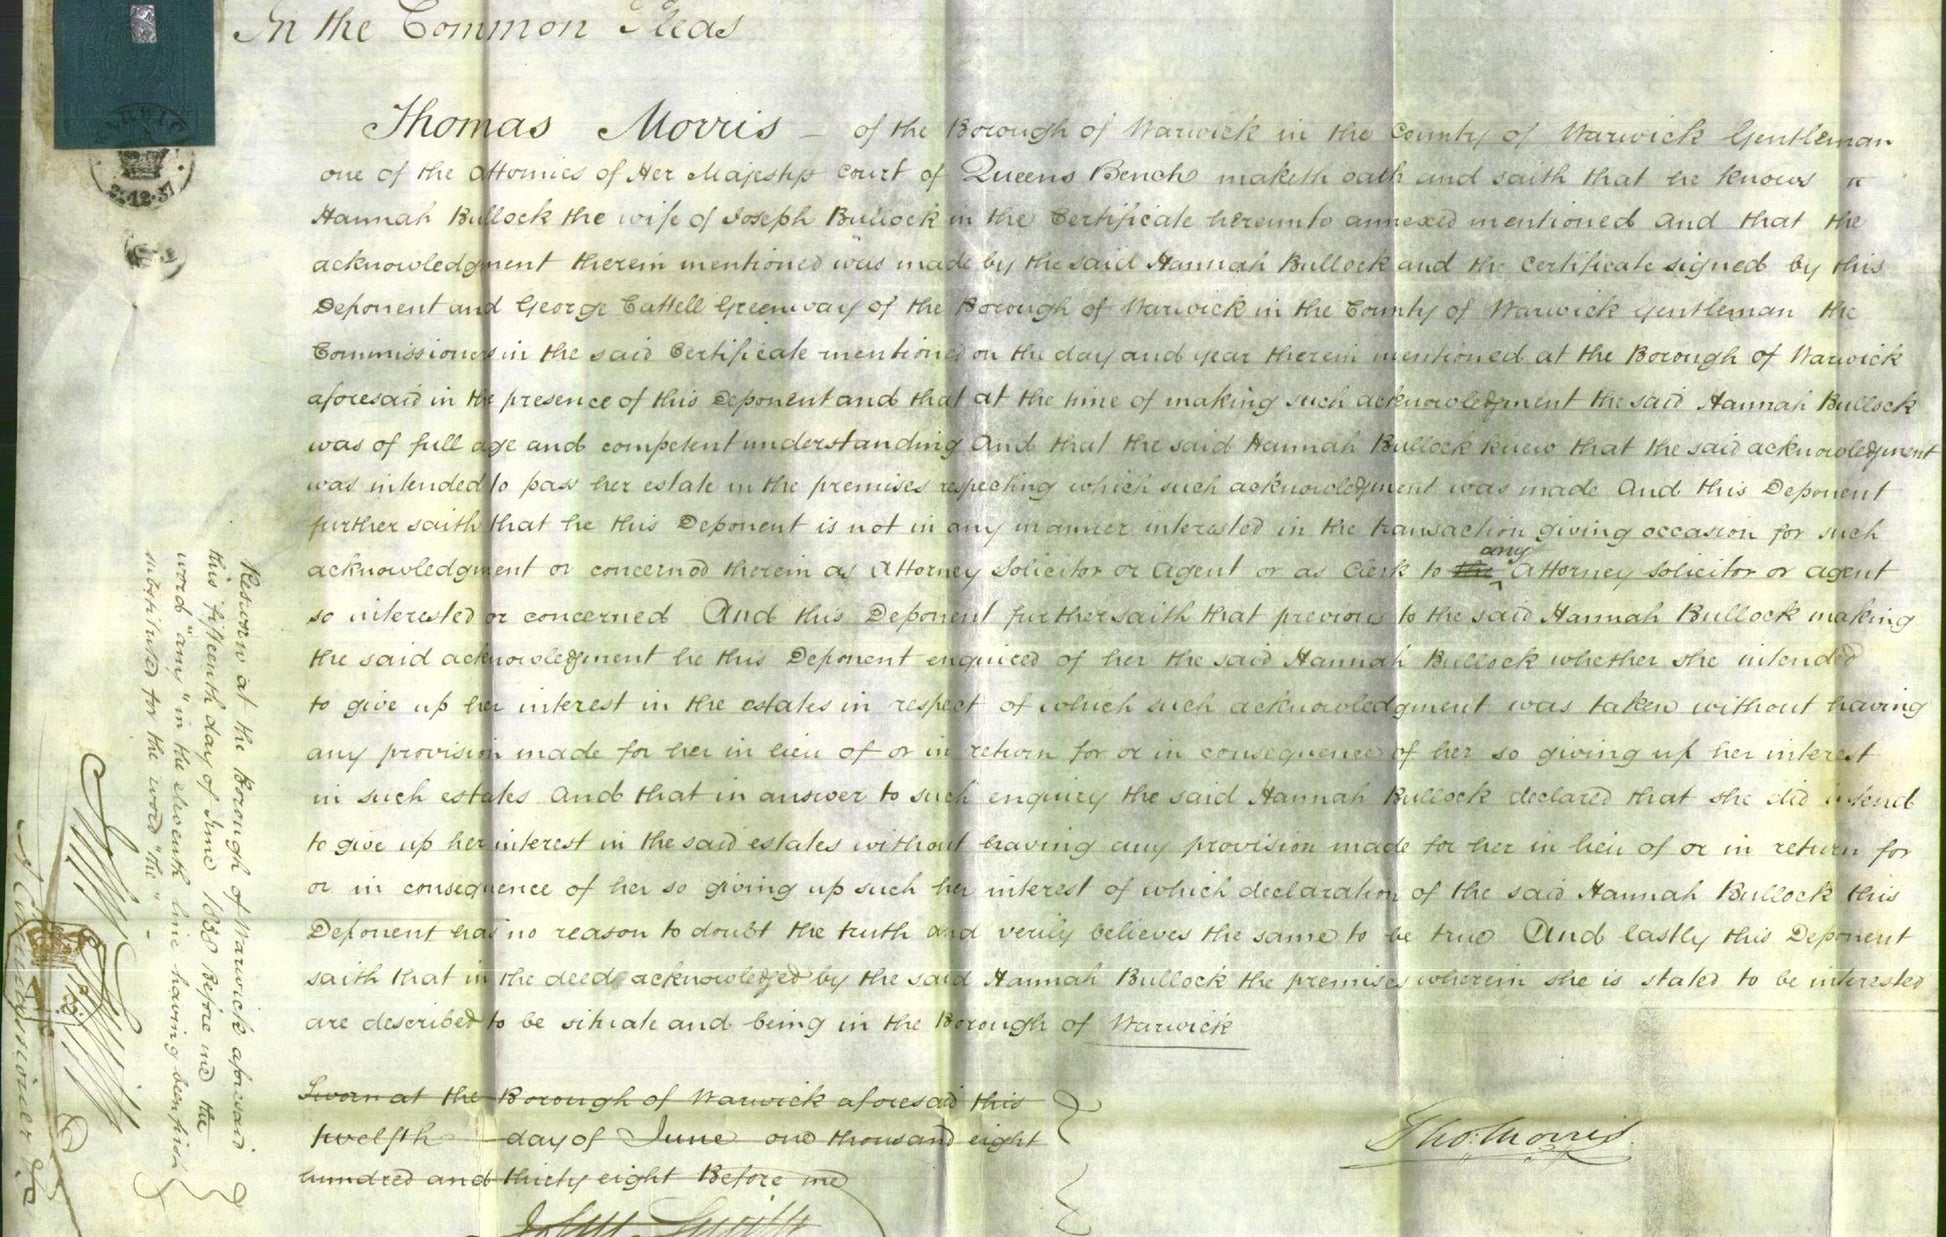 In the Common Pleas
Thomas Morris - of the Borough of Warwick in the County of Warwick Gentleman
one of the Attornies of Her Majestys Court of Queens Bench maketh oath and saith that he knows
Hannah Bullock the wife of Joseph Bullock in the Certificate hereunto annexed mentioned And that the
acknowledgment therein mentioned was made by the said Hannah Bullock and the Certificate signed by this
Deponent and George Cattell Greenway of the Borough of Warwick in the County of Warwick Gentleman the
Commissioners in the said Certificate mentioned on the day and year therein mentioned at the Borough of Warwick
aforesaid in the presence of this Deponent and that at the time of making such acknowledgment the said Hannah Bullock
was of full age and competent understanding And that the said Hannah Bullock knew that the said acknowledgment
was intended to pass her estate in the premises respecting which such acknowledgment was made And this Deponent
further saith that he this Deponent is not in any manner interested in the transaction giving occasion for such
acknowledgment or concerned therein as Attorney Solicitor or Agent or as Clerk to the any Attorney solicitor or agent
so interested or concerned And this Deponent further saith that previous to the said Hannah Bullock making
the said acknowledgment he this Deponent enquired of her the said Hannah Bullock whether she intended
to give up her interest in the estates in respect of which such acknowledgment was taken without having
any provision made for her in lieu of or in return for or in consequence of her so giving up her interest
in such estates And that in answer to such enquiry the said Hannah Bullock declared that she did intend
to give up her interest in the said estates without having any provision made for her in lieu of or in return for
or in consequence of her so giving up such her interest of which declaration of the said Hannah Bullock this
Deponent has no reason to doubt the truth and verily believes the same to be true And lastly this Deponent
saith that in the deed acknowledged by the said Hannah Bullock the premises wherein she is stated to be interested
are described to be situate and being in the Borough of Warwick
Sworn at the Borough of Warwick aforesaid this
twelfth day of June one thousand eight
hundred and thirty eight Before me
John Smith
Tho. Morris
Resworn at the Borough of Warwick aforesaid
this fifteenth day of June 1838 Before me the
word "any" in the eleventh line having been first
substituted for the word "the" -
John Smith
A Commissioner &c
2.12.37